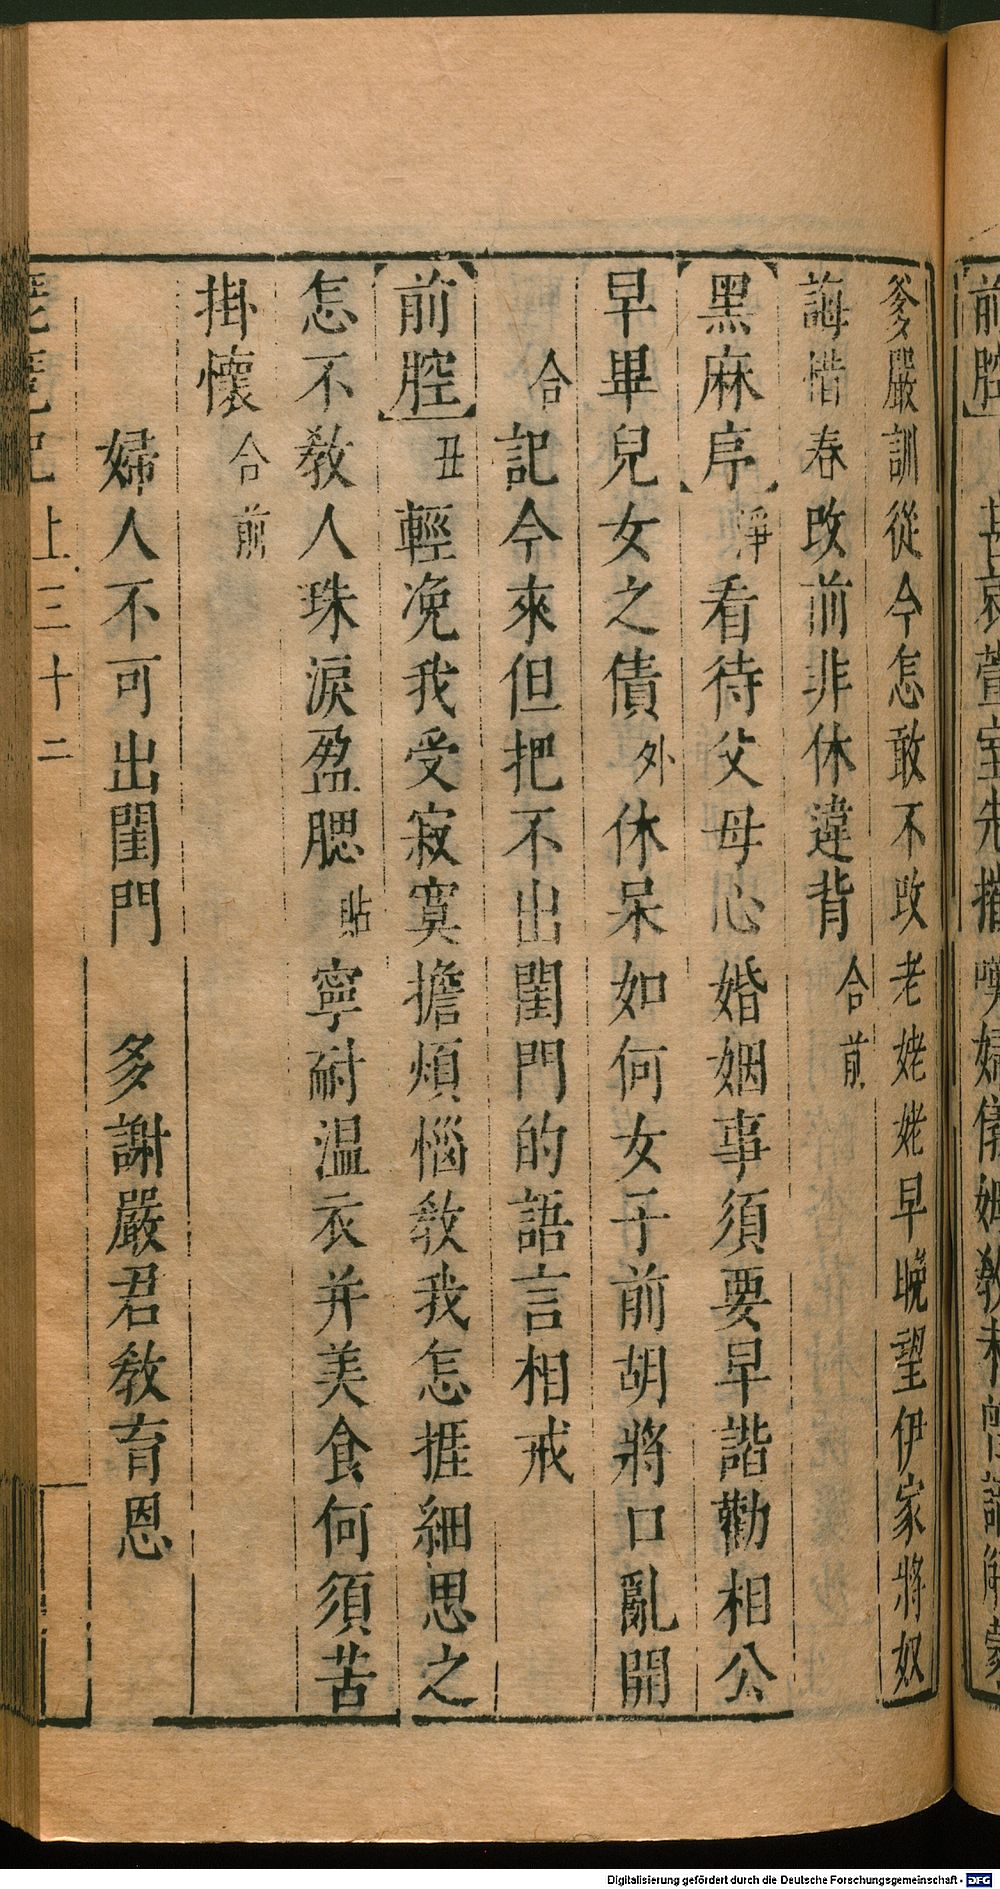 前腔 甚哀萱室先摧嘆婦儀姆教未曾諳解蒙
爹嚴訓從今怎敢不改老姥姥早晚望伊家將奴
誨惜春改前非休違背 合前
黑麻序 淨 看待父母心婚姻事須要早諧勸相公
早畢兒女之債 外 休呆如何女子前胡將口亂開
合 記今來但把不出閨門的語言相戒
前腔 丑 輕浼我受寂寞擔煩惱教我怎捱細思之
怎不教人珠淚盈腮 貼 寧耐溫衣并美食何須苦
掛懷 合前
婦人不可出閨門 多謝嚴君教育恩
琵琶記 上 三十二
Digitalisierung gefördert durch die Deutsche Forschungsgemeinschaft - DFG